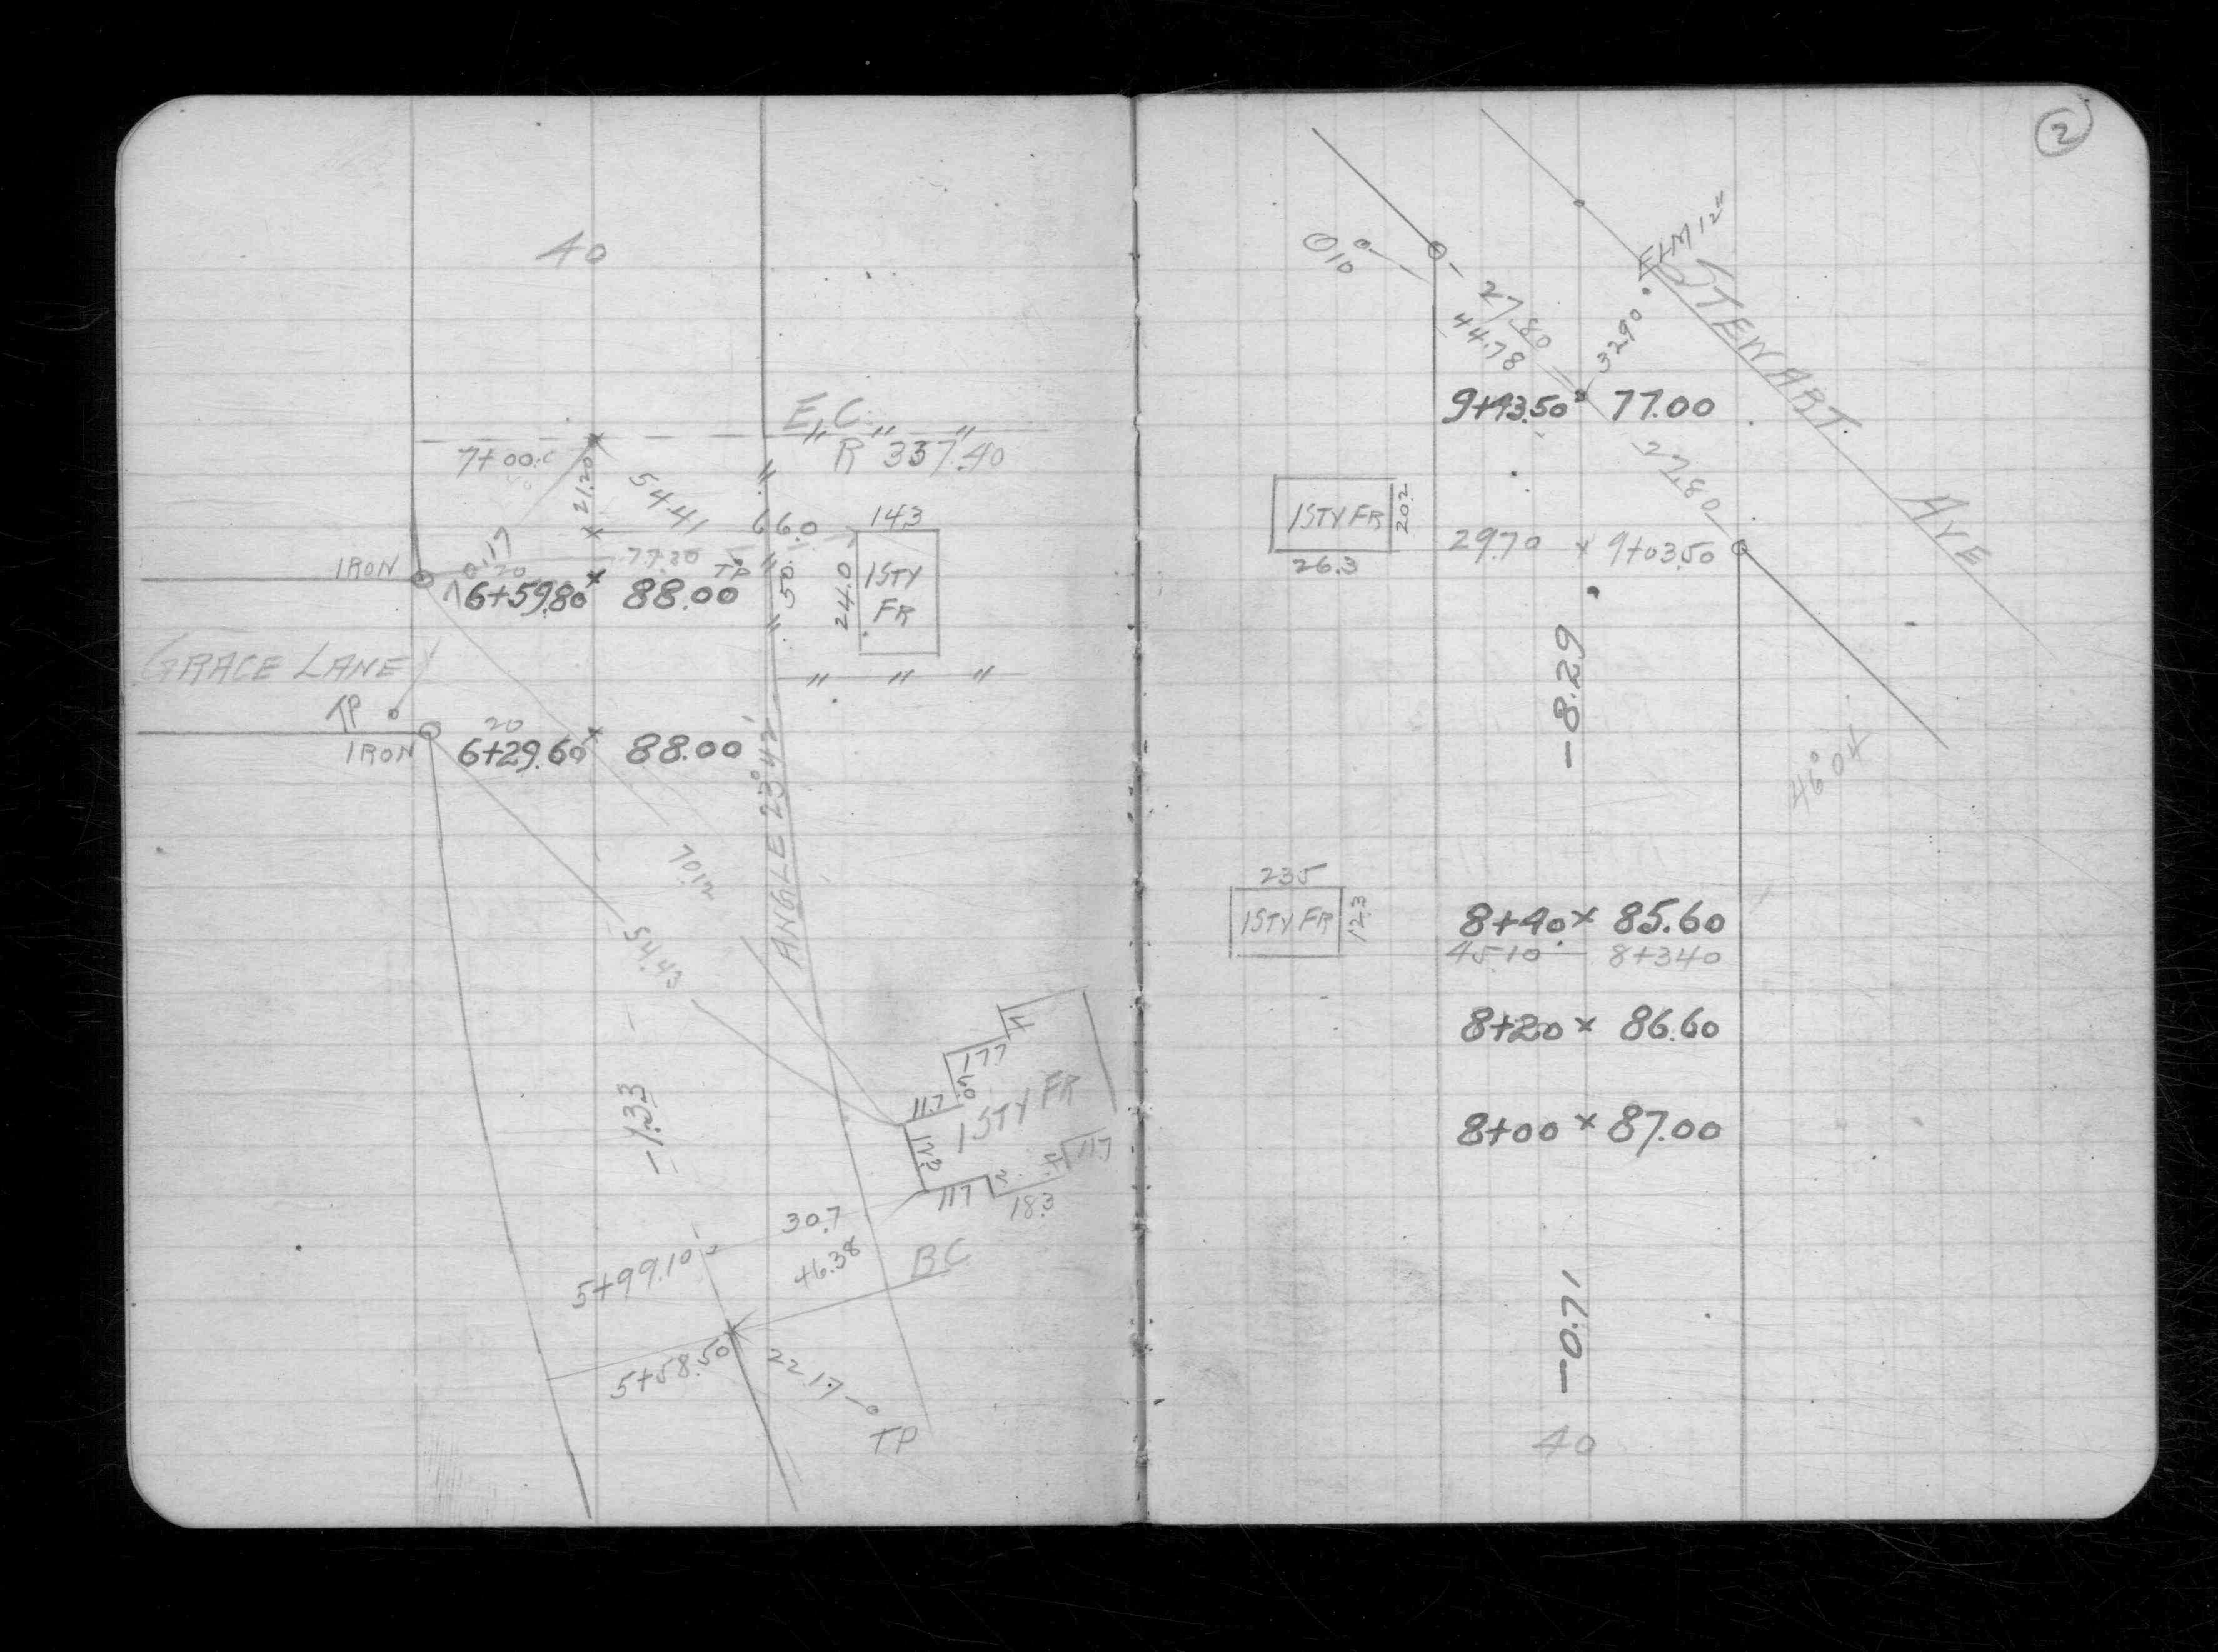 40
E.C.
R 337.40
7+00.
21.20
54.41
66.0
143
IRON
0.17
20
77.20
TP
6+59.80 88.00
50.
24.0
1STY
FR
GRACE LANE
TP
IRON
20
6+29.60 88.00
ANGLE 23°42'
70.12
54.43
-1.33
177
11.7
1STY FR
117
18.3
117
30.7
46.38
5+99.10
BC
5+58.50
22.17
TP
2
010
ELM 12"
STEWART. AVE
27.80
44.78
32.90
9+43.50 77.00
27.80
1STY FR
20.2
26.3
29.70 x 9+03.50
-8.29
46°04
235
1STY FR
12.3
8+40 x 85.60
45.10 8+340
8+20 x 86.60
8+00 x 87.00
-0.71
40